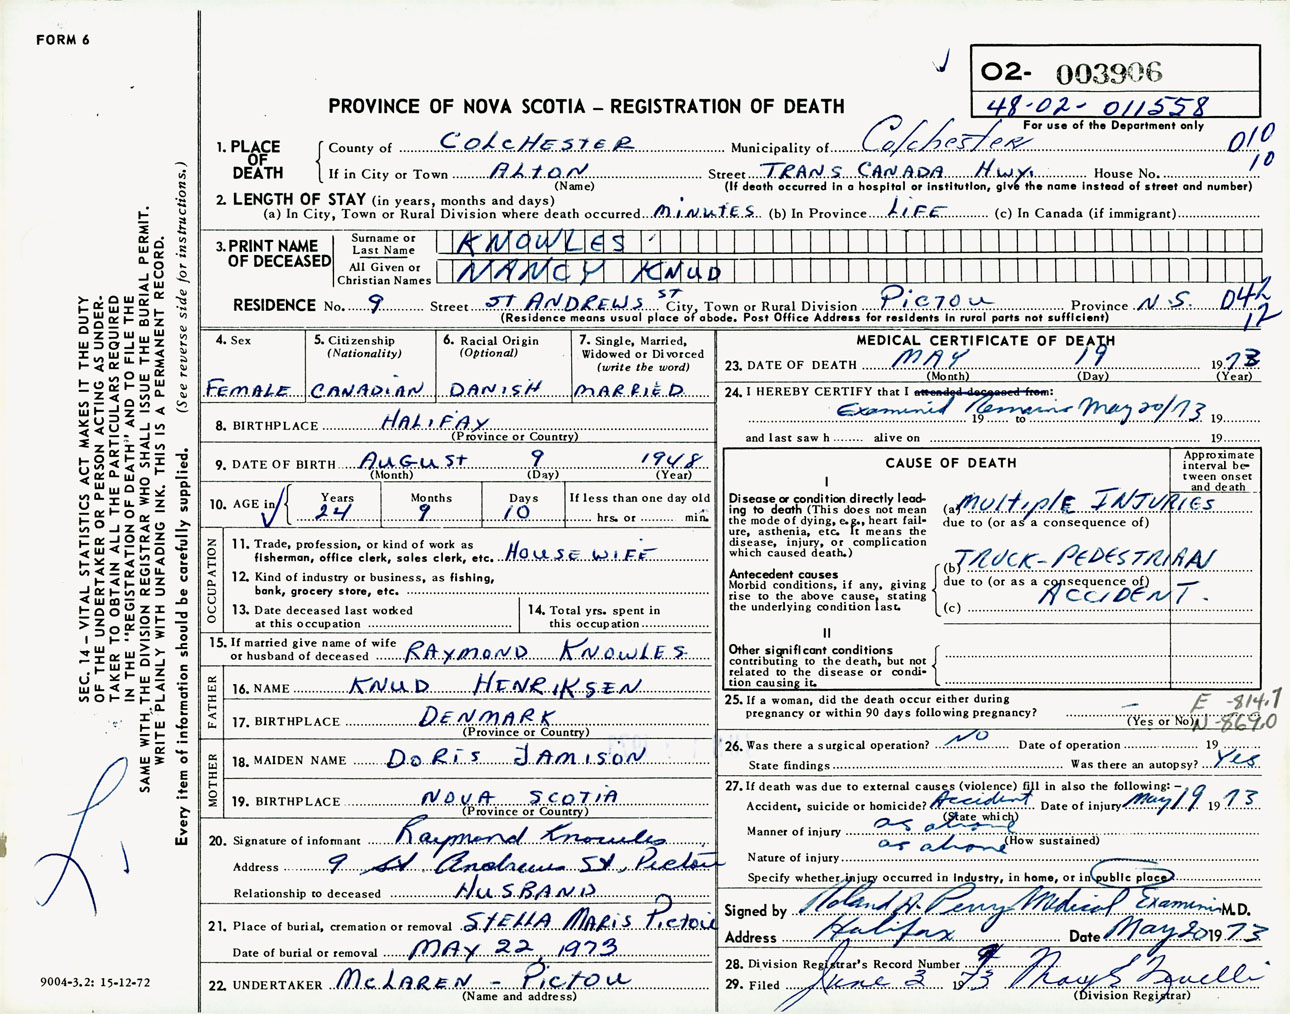 FORM 6
O2- 003906
48-02-011558
For use of the Department only
PROVINCE OF NOVA SCOTIA – REGISTRATION OF DEATH
1. PLACE OF DEATH
County of COLCHESTER Municipality of Colchester 010
If in City or Town ALTON Street TRANS CANADA HWY. House No. 10
(Name) (If death occurred in a hospital or institution, give the name instead of street and number)
2. LENGTH OF STAY (in years, months and days)
(a) In City, Town or Rural Division where death occurred MINUTES (b) In Province LIFE (c) In Canada (if immigrant)
3. PRINT NAME OF DECEASED
Surname or Last Name KNOWLES
All Given or Christian Names NANCY KNUD
RESIDENCE No. 9 Street ST ANDREWS ST City, Town or Rural Division PICTOU Province N.S. 042
12
(Residence means usual place of abode. Post Office Address for residents in rural parts not sufficient)
4. Sex FEMALE
5. Citizenship (Nationality) CANADIAN
6. Racial Origin (Optional) DANISH
7. Single, Married, Widowed or Divorced (write the word) MARRIED
8. BIRTHPLACE HALIFAX
(Province or Country)
9. DATE OF BIRTH AUGUST 9 1948
(Month) (Day) (Year)
10. AGE in Years 24 Months 9 Days 10 If less than one day old
hrs. or min.
OCCUPATION
11. Trade, profession, or kind of work as fisherman, office clerk, sales clerk, etc. HOUSEWIFE
12. Kind of industry or business, as fishing, bank, grocery store, etc.
13. Date deceased last worked at this occupation
14. Total yrs. spent in this occupation
15. If married give name of wife or husband of deceased RAYMOND KNOWLES
FATHER
16. NAME KNUD HENRIKSEN
17. BIRTHPLACE DENMARK
(Province or Country)
MOTHER
18. MAIDEN NAME DORIS JAMISON
19. BIRTHPLACE NOVA SCOTIA
(Province or Country)
20. Signature of informant Raymond Knowles
Address 9 St. Andrews St., Pictou
Relationship to deceased HUSBAND
21. Place of burial, cremation or removal STELLA MARIS Pictou
Date of burial or removal MAY 22, 1973
22. UNDERTAKER McLAREN - PICTOU
(Name and address)
MEDICAL CERTIFICATE OF DEATH
23. DATE OF DEATH MAY 19 1973
(Month) (Day) (Year)
24. I HEREBY CERTIFY that I attended deceased from:
Examined Remains May 20/73
19 to 19
and last saw h alive on 19
CAUSE OF DEATH
Approximate interval between onset and death
I
Disease or condition directly leading to death (This does not mean the mode of dying, e.g., heart failure, asthenia, etc. It means the disease, injury, or complication which caused death.)
(a) MULTIPLE INJURIES
due to (or as a consequence of)
Antecedent causes
Morbid conditions, if any, giving rise to the above cause, stating the underlying condition last.
(b) TRUCK-PEDESTRIAN
due to (or as a consequence of)
(c) ACCIDENT.
II
Other significant conditions contributing to the death, but not related to the disease or condition causing it.
25. If a woman, did the death occur either during pregnancy or within 90 days following pregnancy? –
(Yes or No)
E -814.7
N-869.0
26. Was there a surgical operation? NO Date of operation 19
State findings Was there an autopsy? Yes
27. If death was due to external causes (violence) fill in also the following:–
Accident, suicide or homicide? Accident Date of injury May 19 1973
(State which)
Manner of injury as above
(How sustained)
Nature of injury as above
Specify whether injury occurred in industry, in home, or in public place
Signed by Roland H. Perry Medical Examiner M.D.
Address Halifax Date May 20 1973
28. Division Registrar's Record Number 9
29. Filed June 2 1973
(Division Registrar)
SEC. 14 – VITAL STATISTICS ACT MAKES IT THE DUTY
OF THE UNDERTAKER OR PERSON ACTING AS UNDER-
TAKER TO OBTAIN ALL THE PARTICULARS REQUIRED
IN THE "REGISTRATION OF DEATH" AND TO FILE THE
SAME WITH THE DIVISION REGISTRAR WHO SHALL ISSUE THE BURIAL PERMIT.
WRITE PLAINLY WITH UNFADING INK. THIS IS A PERMANENT RECORD.
Every item of information should be carefully supplied. (See reverse side for instructions.)
9004-3.2: 15-12-72